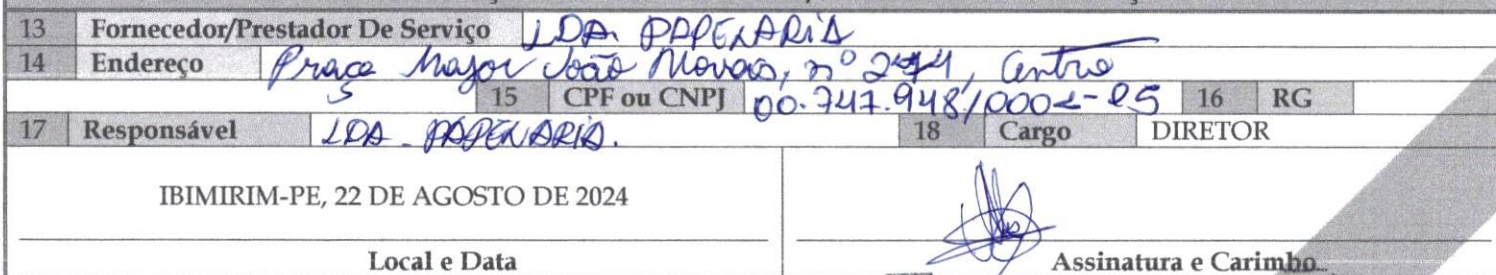 13 Fornecedor/Prestador De Serviço LDA PAPELARIA
14 Endereço Praça Major João Novaes, nº 274, Centro
15 CPF ou CNPJ 00.747.948/0001-25 16 RG
17 Responsável LDA - PAPELARIA. 18 Cargo DIRETOR
IBIMIRIM-PE, 22 DE AGOSTO DE 2024
Local e Data Assinatura e Carimbo